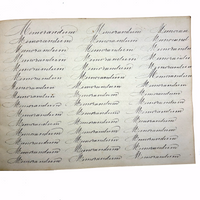 Memorandum Memorandum Memoran
Memorandum Memorandum Memorandum
Memorandum Memorandum Memorandum
Memorandum Memorandum Memorandum
Memorandum Memorandum Memorandum
Memorandum Memorandum Memorandum
Memorandum Memorandum Memorandum
Memorandum Memorandum Memorandum
Memorandum Memorandum Memorandum
Memorandum Memorandum Memorandum
Memorandum Memorandum Memorandum
Memorandum Memorandum Memorandum
Memorandum Memorandum Memorandum
Memorandum Memorandum Memorandum